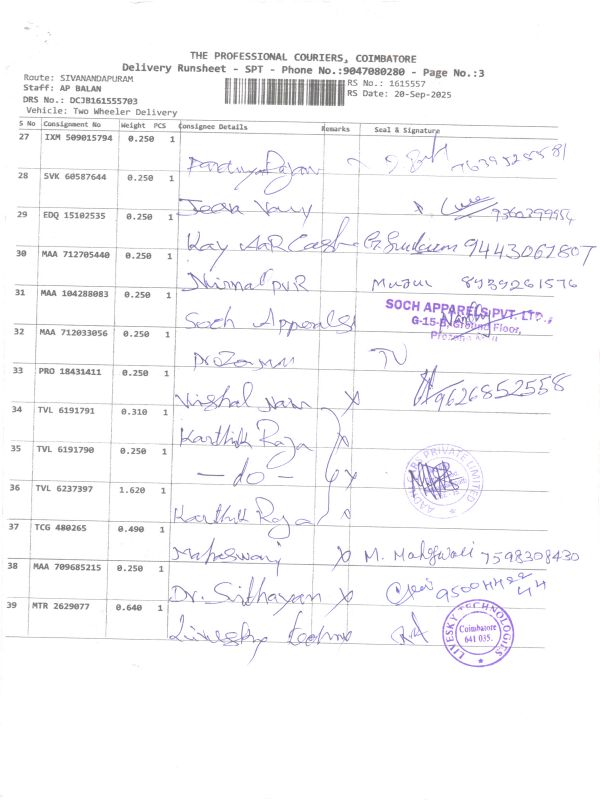 THE PROFESSIONAL COURIERS, COIMBATORE
Delivery Runsheet - SPT - Phone No.:9047080280 - Page No.:3
Route: SIVANANDAPURAM
Staff: AP BALAN
DRS No.: DCJB161555703
Vehicle: Two Wheeler Delivery
RS No.: 1615557
RS Date: 20-Sep-2025
S No Consignment No Weight PCS Consignee Details Remarks Seal & Signature
27 IXM 509015794 0.250 1
28 SVK 60587644 0.250 1
29 EDQ 15102535 0.250 1
Kay AAR Cast G. Sundaram 9443061807
30 MAA 712705440 0.250 1
Nirmal PVR 8939261576
31 MAA 104288083 0.250 1
Soch Apperals SOCH APPARELS PVT. LTD.,
G-15-B, Ground Floor,
32 MAA 712033056 0.250 1
Prozone TV
33 PRO 18431411 0.250 1
Vishal Nair x 9626852558
34 TVL 6191791 0.310 1
Karthik Raja x
35 TVL 6191790 0.250 1
— do — x PRIVATE LIMITED
36 TVL 6237397 1.620 1
Karthik Raja x
37 TCG 480265 0.490 1
Maheswari x M. Maheswari 7598308430
38 MAA 709685215 0.250 1
Dr. Sidhayan x 95004422
44
39 MTR 2629077 0.640 1
Livesky Techno
LIVESKY TECHNOLOGIES
Coimbatore
641 035.